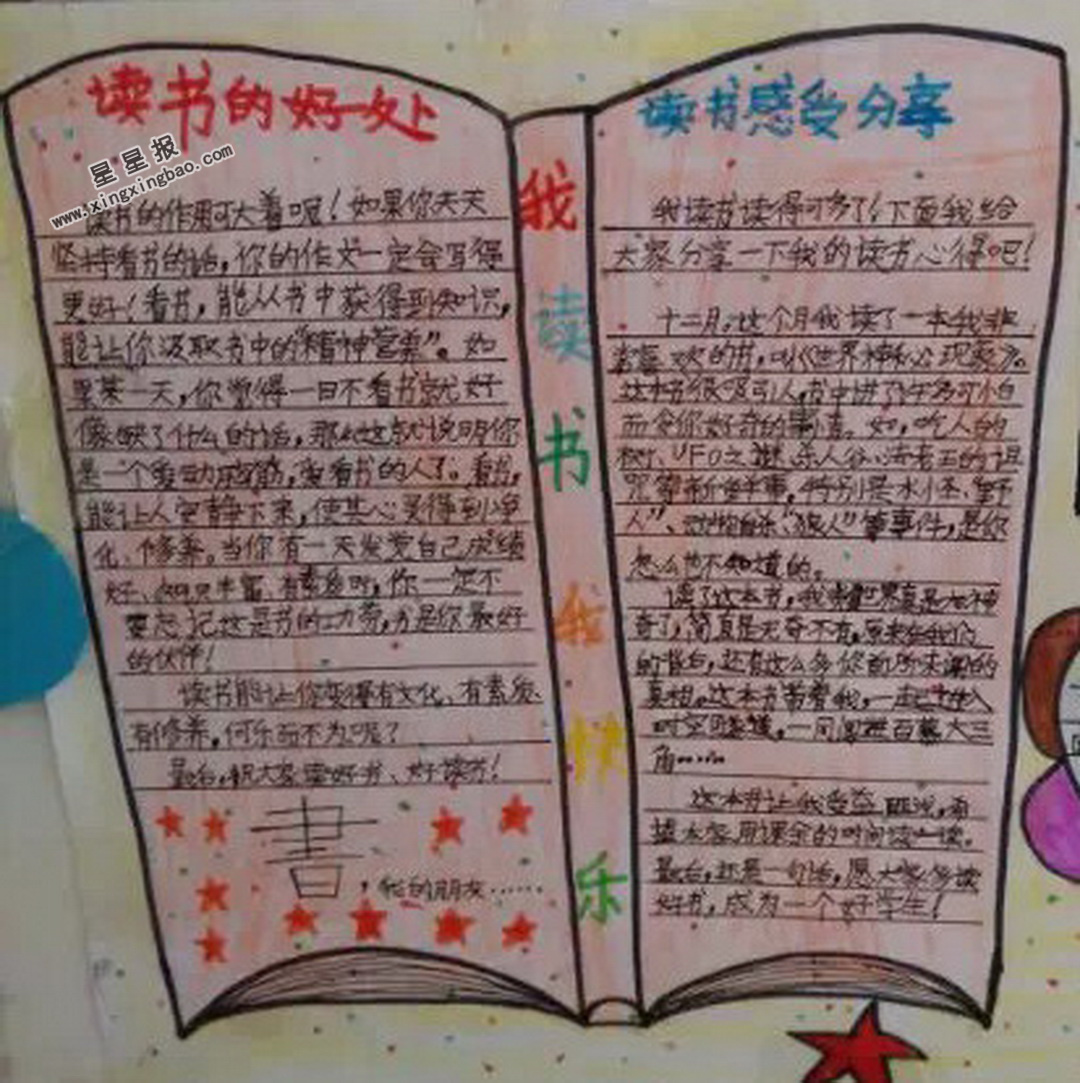 读书的好处
星星报
www.xingxingbao.com
读书的作用可大着呢!如果你天天
坚持看书的话,你的作文一定会写得
更好!看书,能从书中获得到知识,
能让你汲取书中的“精神营养”。如
果某一天,你觉得一日不看书就好
像缺了什么的话,那么这就说明你
是一个爱动脑筋,爱看书的人了。看书,
能让人安静下来,使其心灵得到净
化、修养。当你有一天发觉自己成绩
好、知识丰富、有素质时,你一定不
要忘记这是书的功劳,才是你最好
的伙伴!
读书能让你变得有文化、有素质、
有修养,何乐而不为呢?
最后,祝大家读好书、好读书!
書,我的朋友……
我读书我快乐
读书感受分享
我读书读得可多了!下面我给
大家分享一下我的读书心得吧!
十二月,这个月我读了一本我非
常喜欢的书,叫《世界神秘现象》。
这本书很吸引人,书中讲了许多可怕
而令你好奇的事。如,吃人的
树、UFO之谜、杀人谷、法老王的诅
咒等新鲜事,特别是水怪、“野
人”、“狼人”等事件,是你
怎么也不知道的。
读了这本书,我觉得世界真是太神
奇了,简直是无奇不有,原来在我们
的背后,还有这么多你前所未闻的
真相。这本书带着我,一起进入
时空隧道,一同闯进百慕大三
角……
这本书让我受益匪浅,希
望大家用课余的时间读一读。
最后,还是一句话,愿大家多读
好书,成为一个好学生!